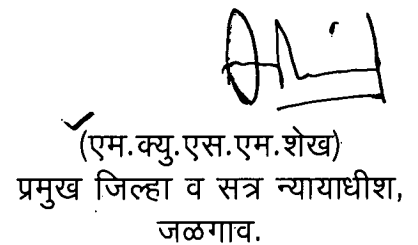 (एम.क्यु.एस.एम.शेख)
प्रमुख जिल्हा व सत्र न्यायाधीश,
जळगाव.